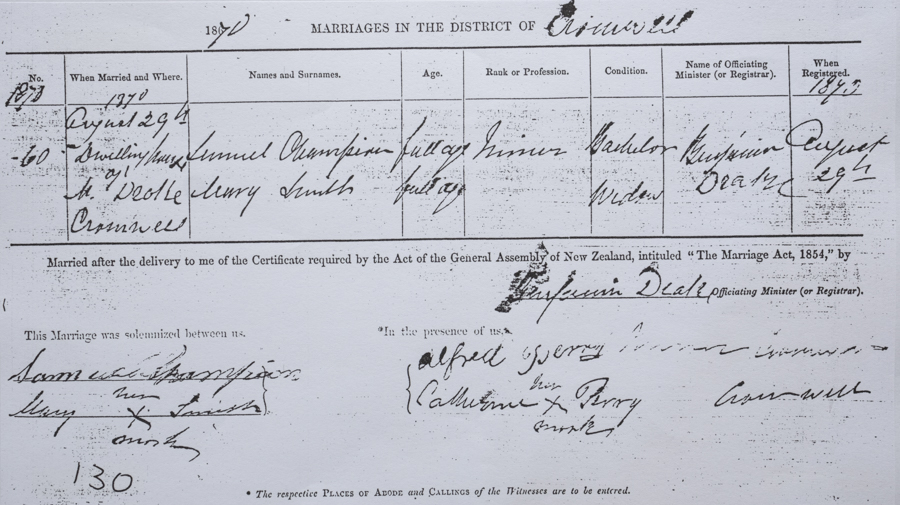 1870 MARRIAGES IN THE DISTRICT OF Cromwell
No. When Married and Where. Names and Surnames. Age. Rank or Profession. Condition. Name of Officiating Minister (or Registrar). When Registered.
1870 1870 1870
August 29th
60 Dwelling house Samuel Champion full age Miner Bachelor Benjamin Drake August 29th
of
Mr. Drake Mary Smith full age Widow
Cromwell
Married after the delivery to me of the Certificate required by the Act of the General Assembly of New Zealand, intituled "The Marriage Act, 1854," by
Benjamin Drake Officiating Minister (or Registrar).
This Marriage was solemnized between us.
Samuel Champion
her
Mary X Smith
mark
*In the presence of us.
Alfred Perry
her
Catherine X Perry Cromwell
mark
130
* The respective PLACES OF ABODE and CALLINGS of the Witnesses are to be entered.